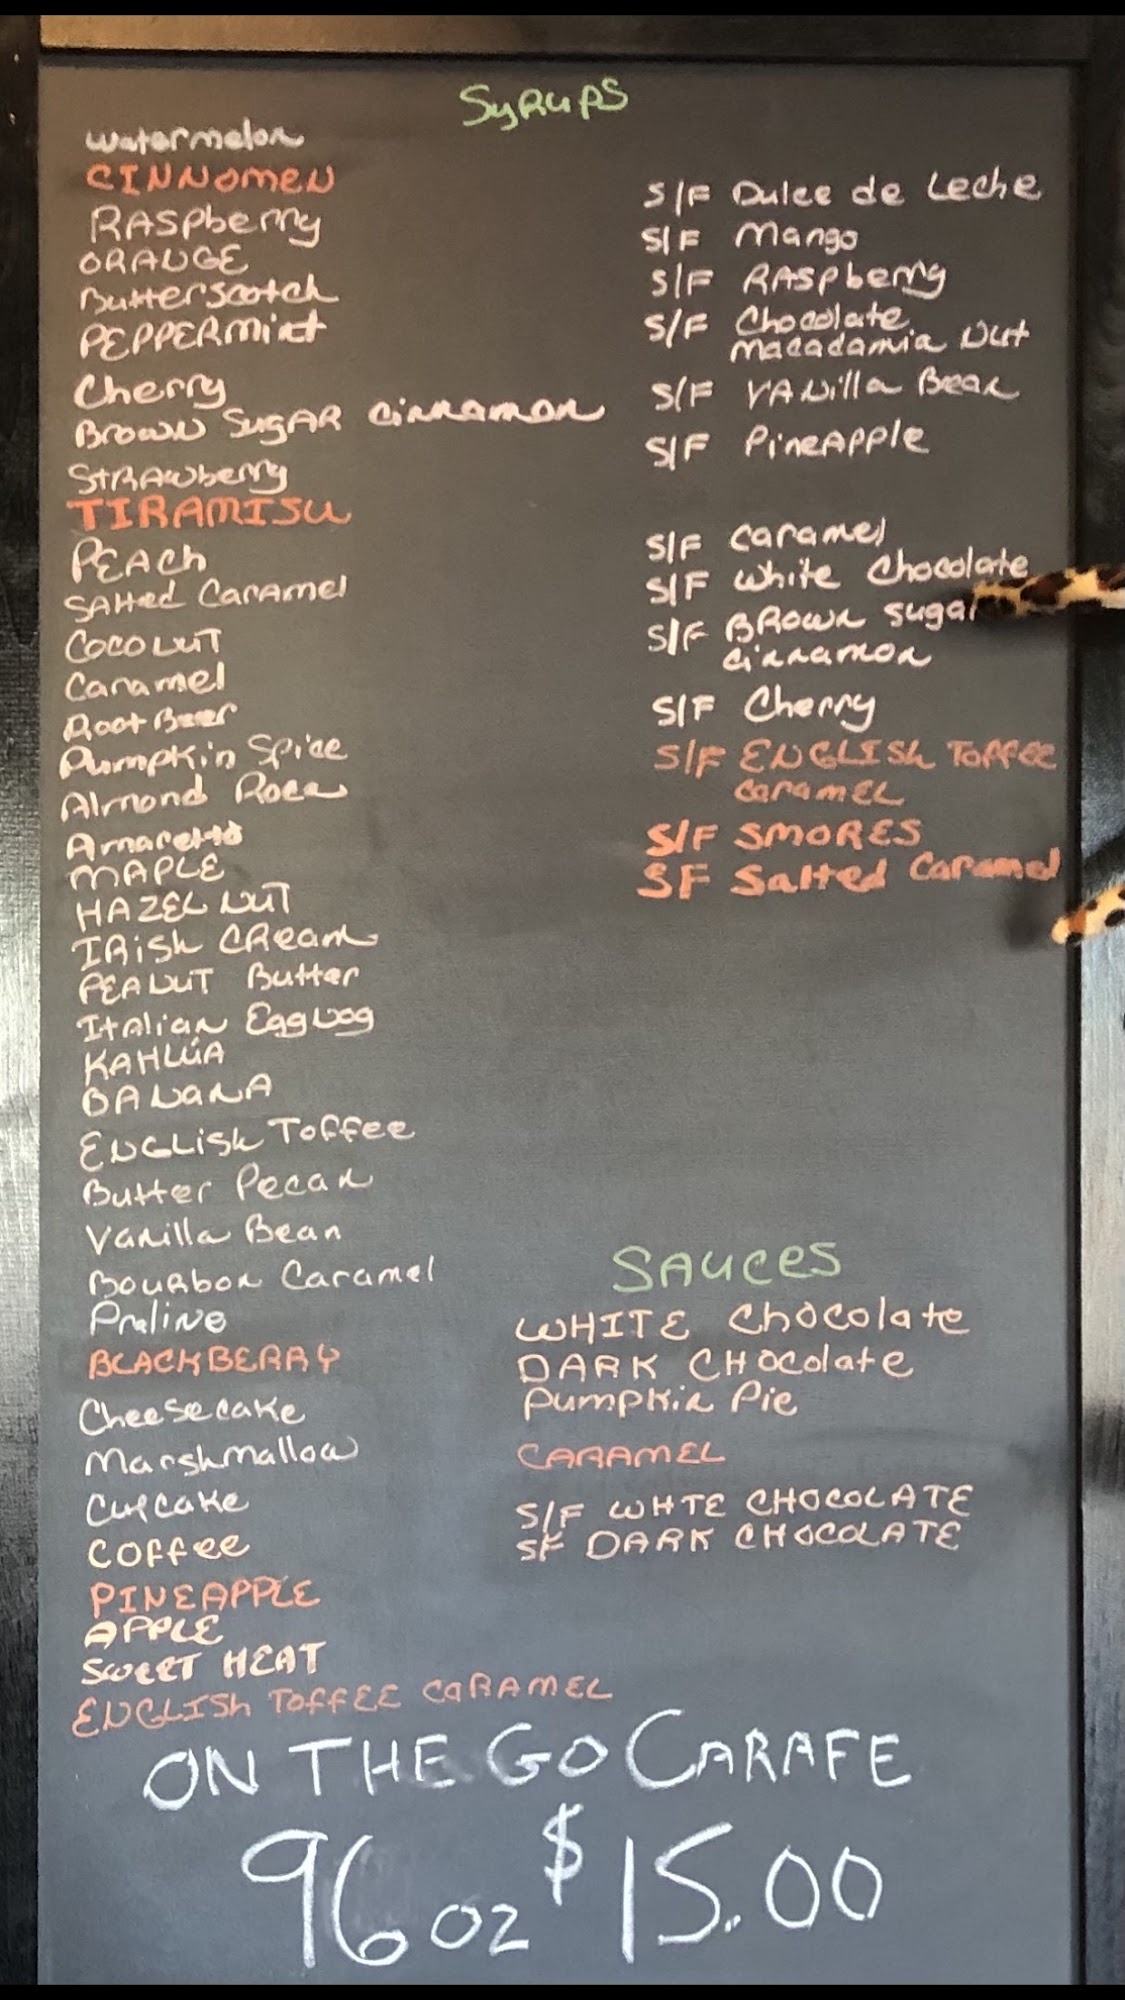 SyRupS
watermelon
CINNOMEN
RASpberry
ORANGE
Butterscotch
PEPPERMint
Cherry
BROWN SUGAR cinnamon
STRAWberry
TIRAMISU
PEACh
SAlted Caramel
COCONUT
Caramel
Root Beer
Pumpkin Spice
Almond Roca
Amaretto
MAPLE
HAZELNUT
IRish CReam
PEANUT Butter
Italian Eggnog
KAHLÚA
BANANA
ENGLish Toffee
Butter Pecan
Vanilla Bean
Bourbon Caramel
Praline
BLACKBERRY
Cheesecake
Marshmallow
Cupcake
COffee
PINEAPPLE
APPLE
SWEET HEAT
ENGLISh TOFFEE CARAMEL
S/F Dulce de Leche
S/F Mango
S/F RASpberry
S/F Chocolate
Macadamia Nut
S/F VANilla Bean
S/F PineApple
S/F Caramel
S/F White Chocolate
S/F BROWN sugar
cinnamon
S/F Cherry
S/F ENGLISh TOFFEE
CaramEL
S/F SMORES
SF Salted Caramel
SAUCES
WHITE Chocolate
DARK CHOcolate
Pumpkin Pie
CARAMEL
S/F WHTE CHOCOLATE
SF DARK CHOCOLATE
ON THE GO CARAFE
96 oz $15.00